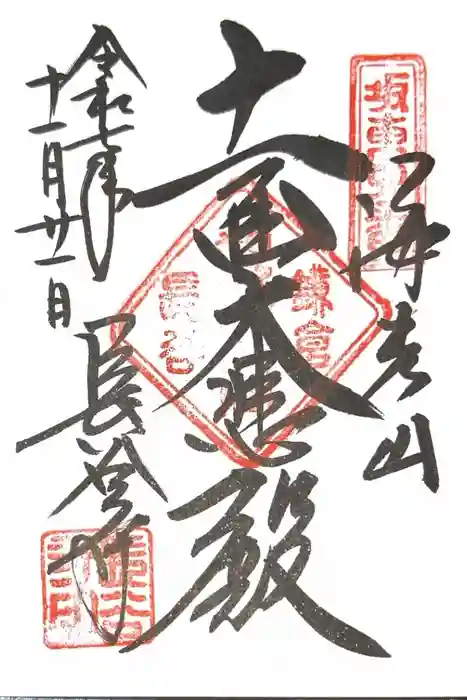 坂東第四番
海光山
十一面大悲殿
鎌倉
長谷
長谷寺
令和七年
十一月廿一日